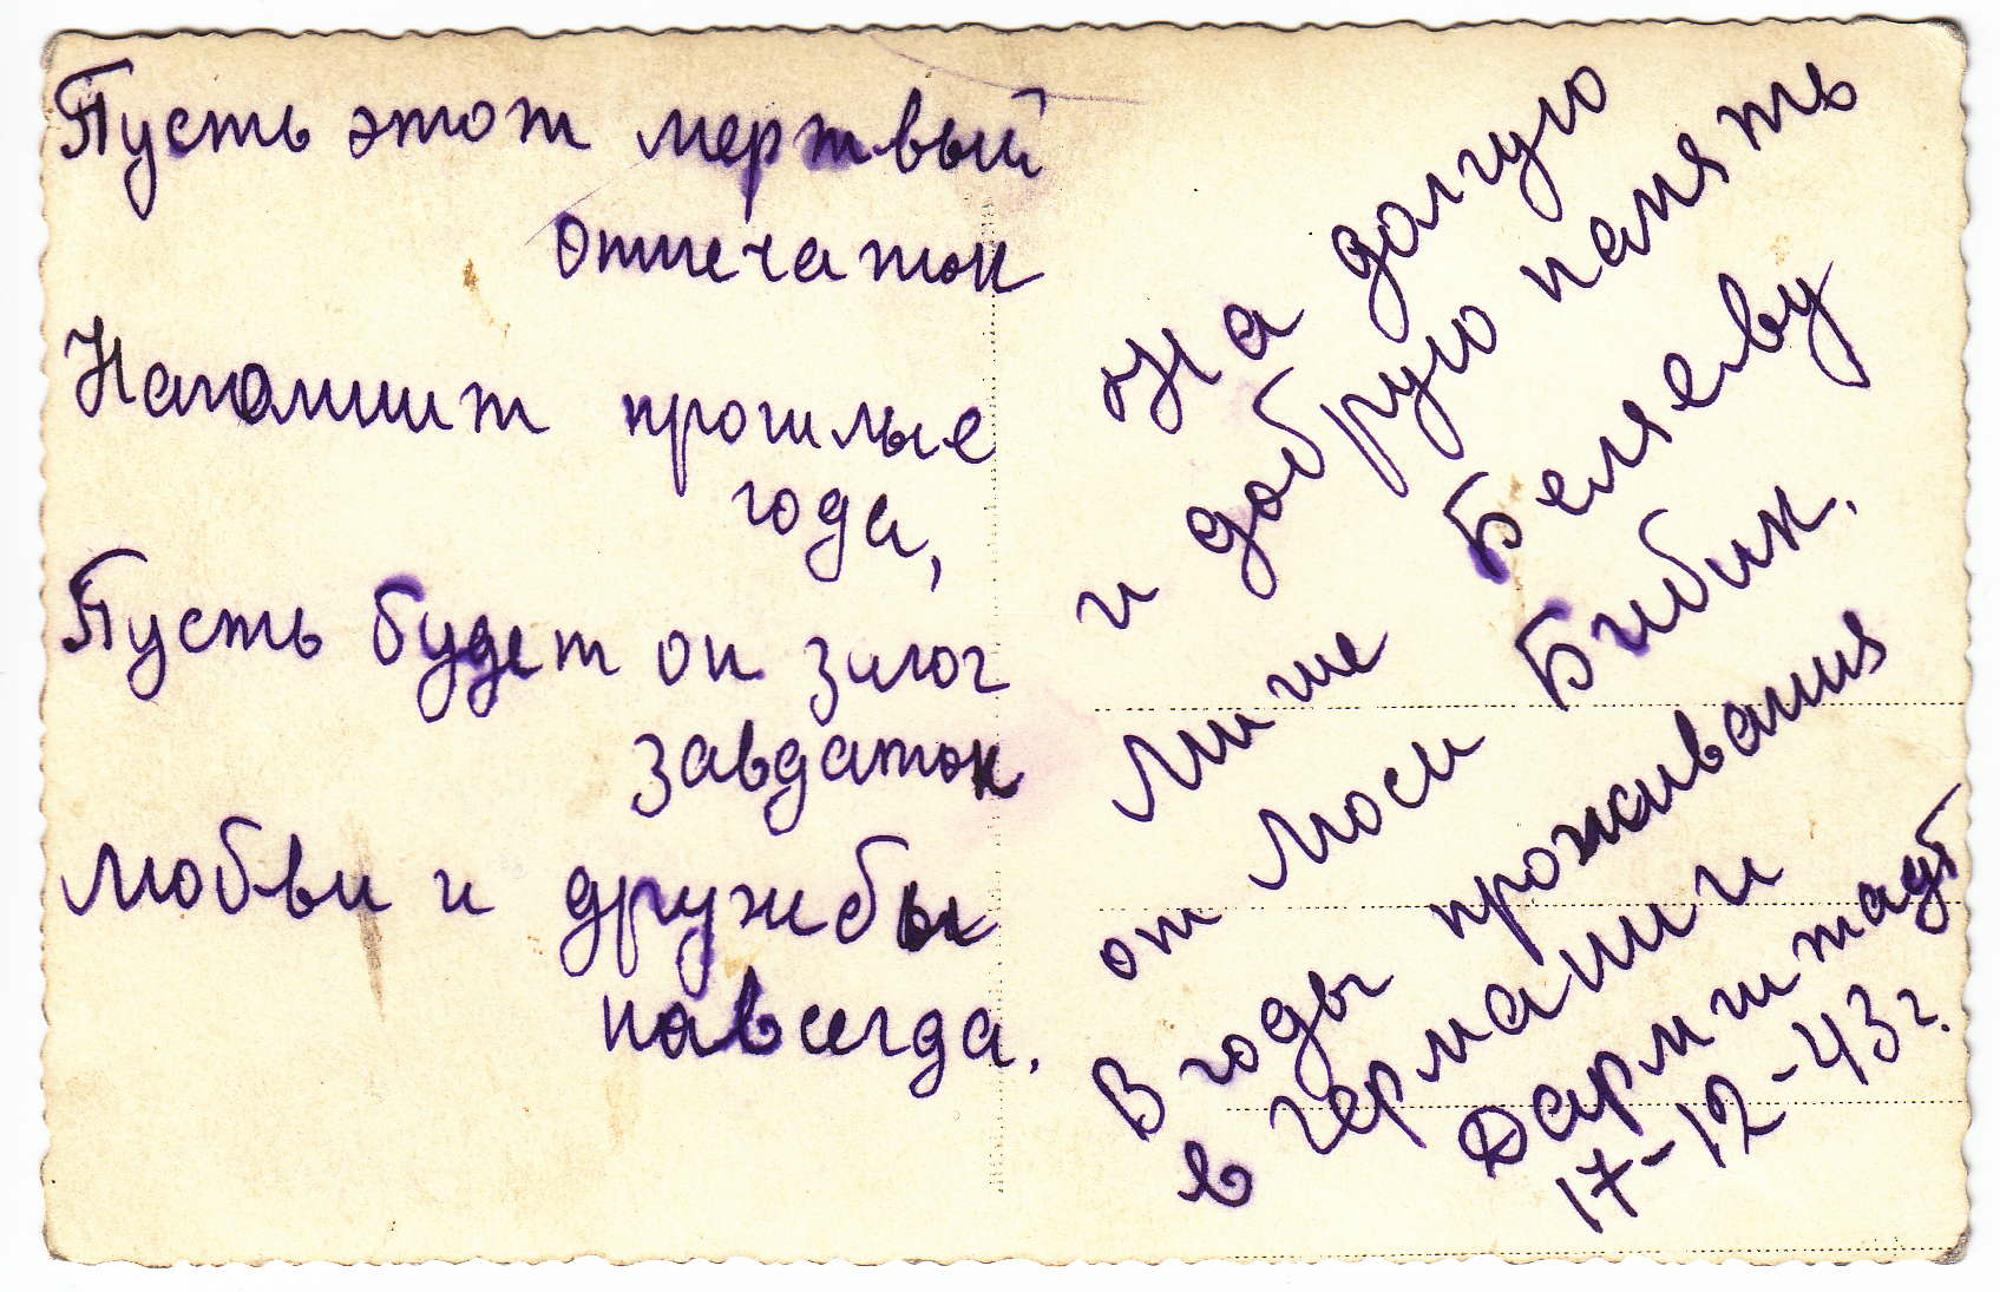 Пусть этот мертвый
отпечаток
Напомнит прошлые
года,
Пусть будет он залог
завдаток
Любви и дружбы
навсегда.
На долгую
и добрую память
Мише Беляеву
от Люси Бибик.
В годы проживания
в германии
Дармштадт
17-12-43 г.